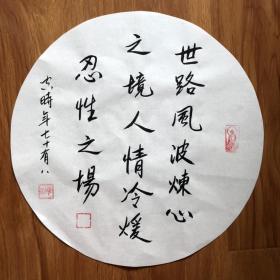 世路風波煉心
之境人情冷煖
忍性之場
時年七十有八